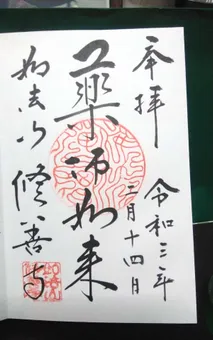 奉拝
令和三年
二月十四日
薬师如来
如法山
修善寺